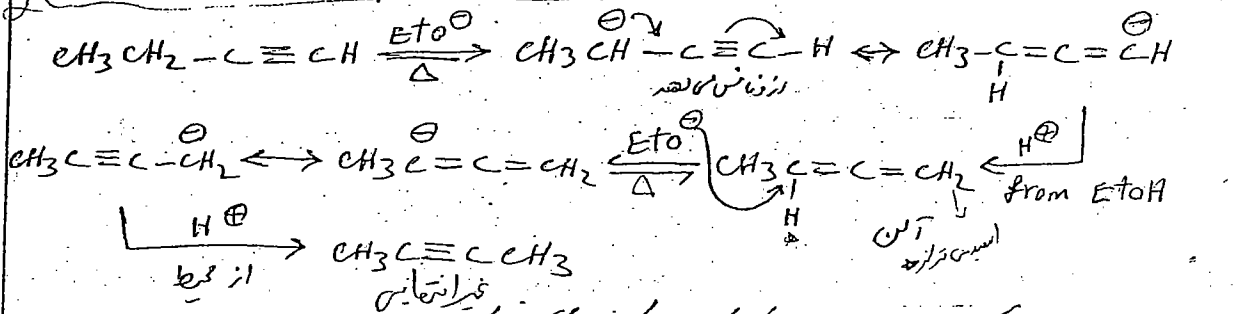 CH₃CH₂–C≡CH —EtO⊖/Δ→ CH₃C⊖H–C≡C–H ↔ CH₃–C(H)=C=C⊖H
رزونانس می‌دهد
CH₃C≡C–C⊖H₂ ↔ CH₃C⊖=C=CH₂ —EtO⊖/Δ→ CH₃C(H)=C=CH₂ ←H⊕ from EtOH
آلن
اسیدی‌تر از
H⊕ از محیط → CH₃C≡CCH₃
غیر انتهایی